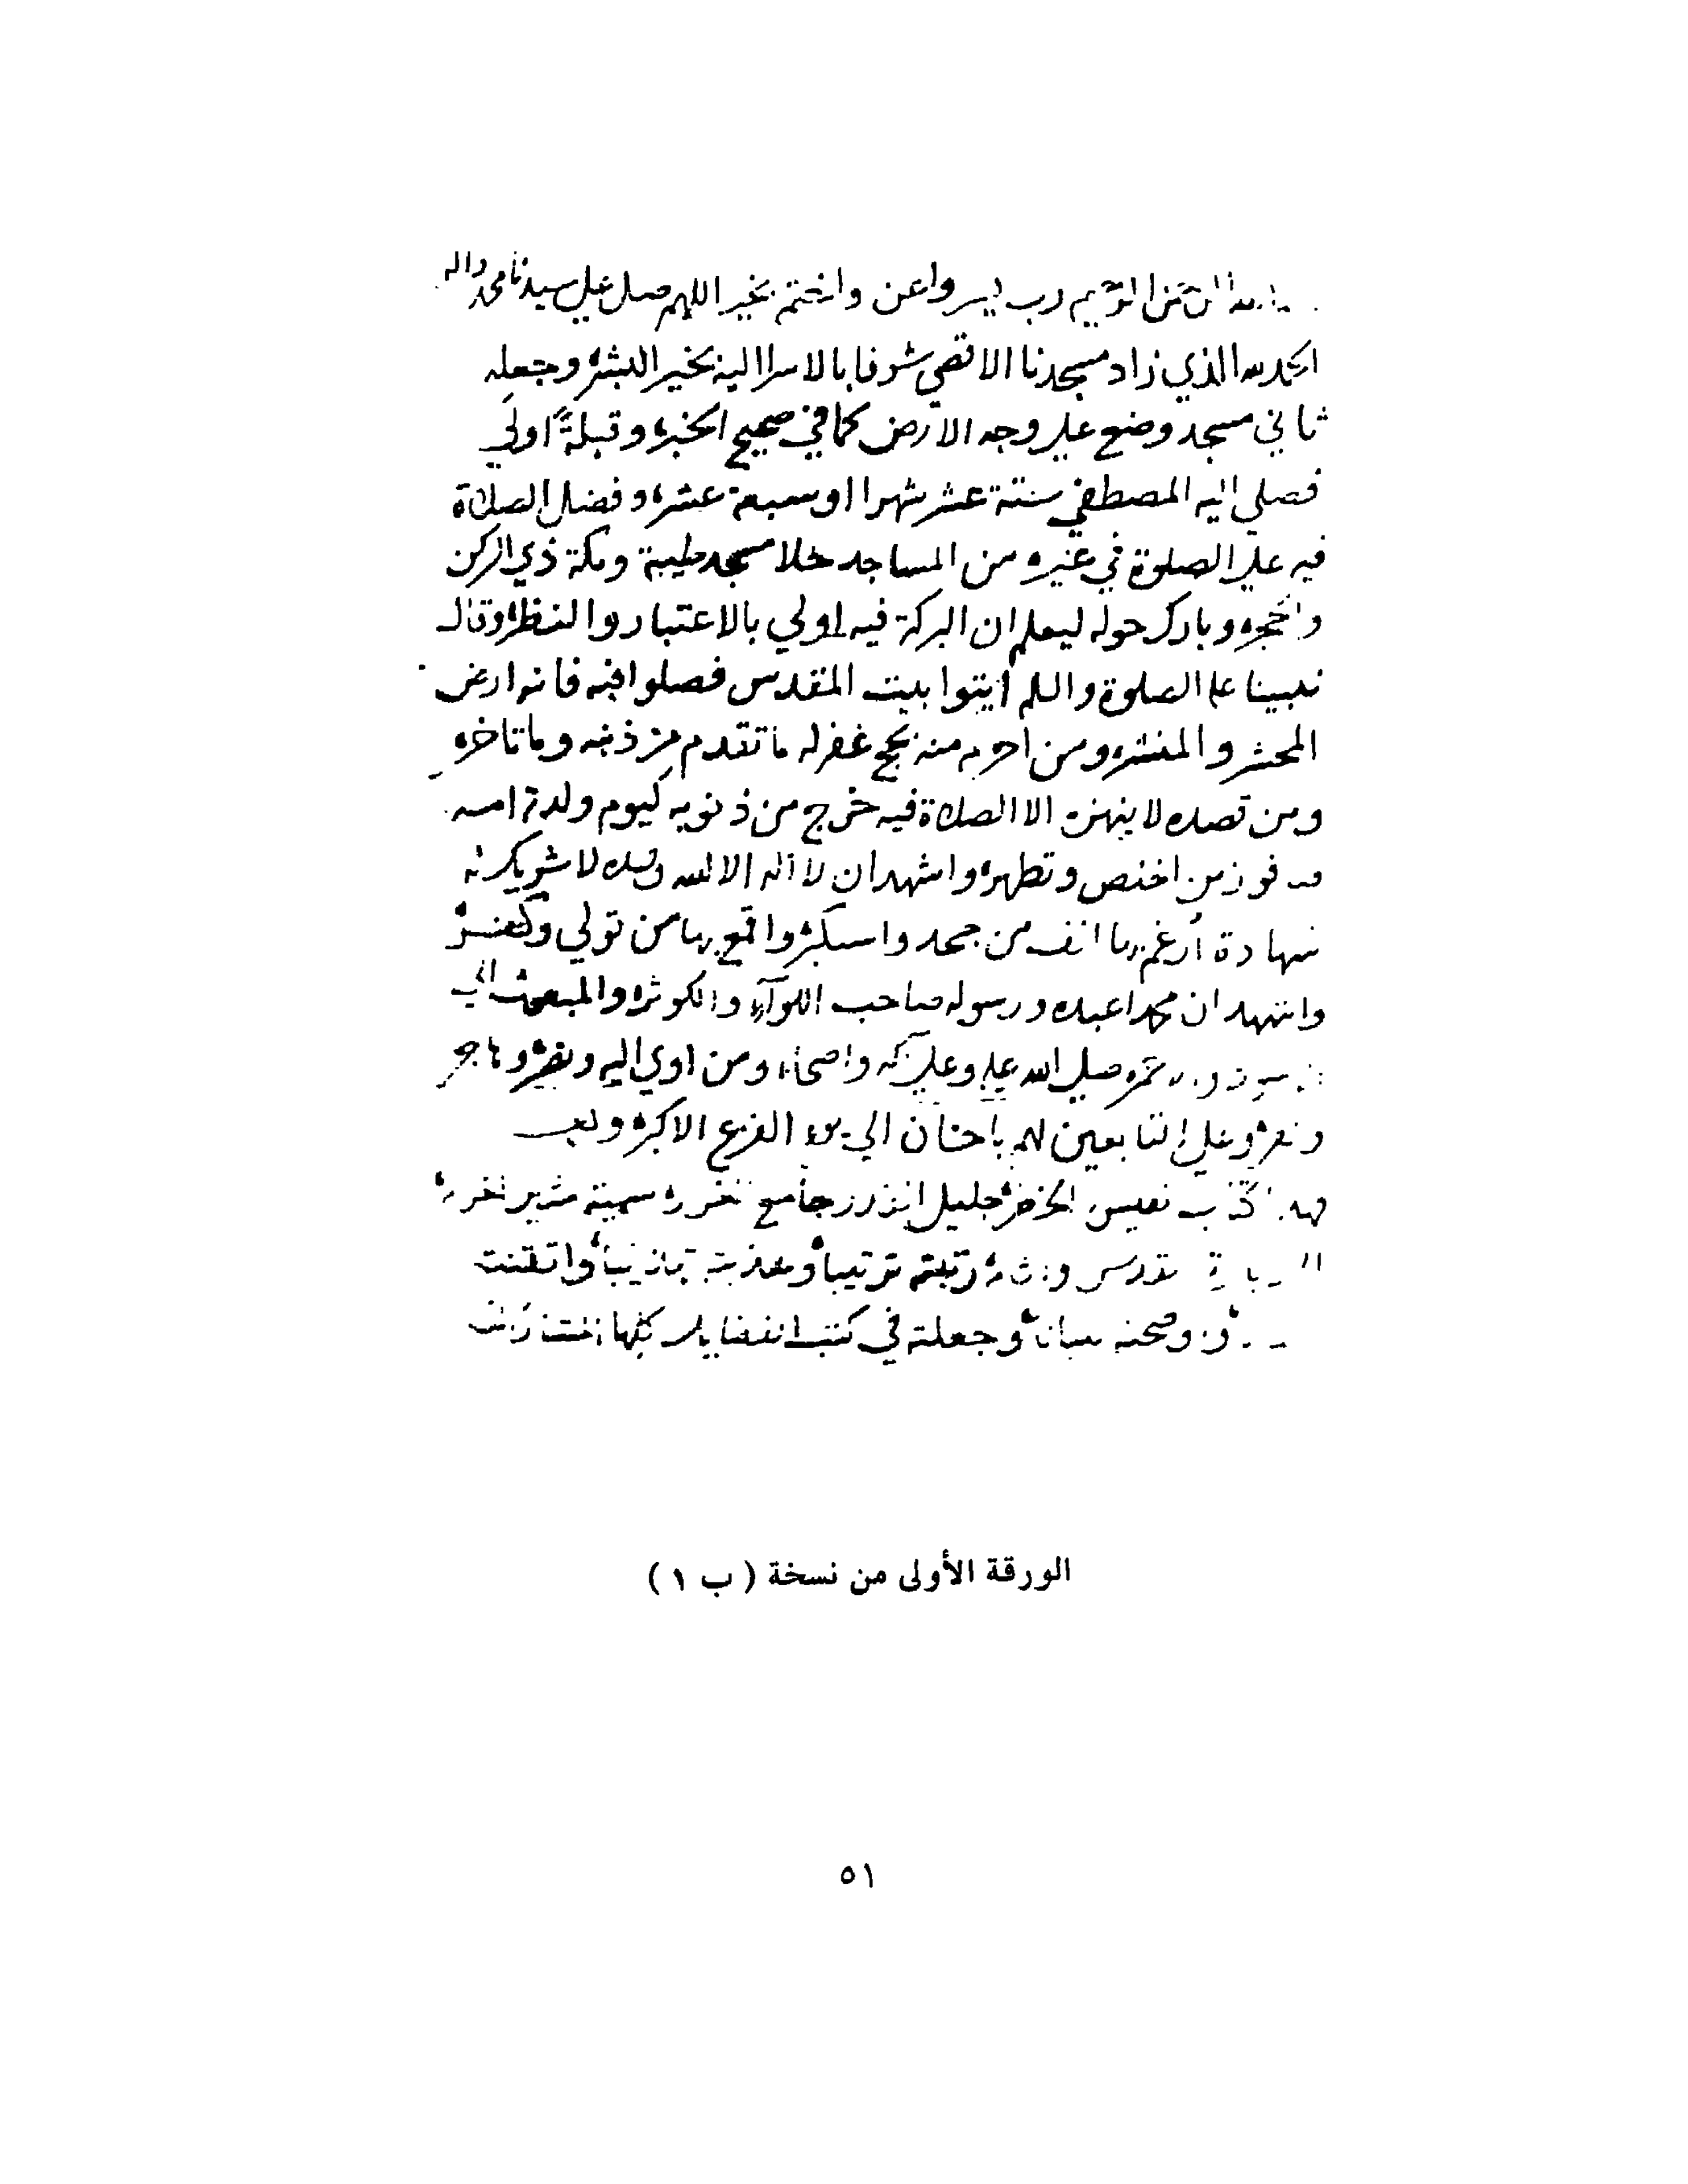 الرحيم رب يسر واعن واختم بخير اللهم صل علي سيدنا محمد واله
الحمد لله الذي زاد مسجدنا الاقصي شرفا بالاسرا اليه بخير البشر وجعله
ثاني مسجد وضع علي وجه الارض كما في صحيح الخبر وقبلةً اولي
فصلي اليه المصطفي ستة عشر شهرا او سبعة عشر وفضل الصلاة
فيه علي الصلوة في غيره من المساجد خلا مسجد طيبة ومكة ذي الركن
والحجر وبارك حوله ليعلم ان البركة فيه اولي بالاعتبار والنظر وقال
نبينا عليه الصلوة والسلم ايتوا بيت المقدس فصلوا فيه فانه ارض
المحشر والمنشر ومن احرم منه بحج غفر له ما تقدم من ذنبه وما تاخر
ومن قصده لا ينهزه الا الصلاة فيه خرج من ذنوبه كيوم ولدته امه
فوز من اختص وتطهر واشهد ان لا اله الا الله وحده لا شريك له
شهادة أرغم بها انف من جحد واستكبر واقمع بها من تولي وكفر
واشهد ان محمدا عبده ورسوله صاحب اللوآء والكوثر والمبعوث الي
صلي الله عليه وعلي آله واصحابه ومن اوي اليه ونصر وهاجر
وعلي التابعين لهم باحسان الي يوم الفزع الاكبر وبعد
فهذا كتاب نفيس الخطر جليل القدر جامع
رتبته ترتيبا وهذبته تهذيبا واتقنته
واوضحته بيانا وجعلته في كتب الفضايل كلها
الورقة الأولى من نسخة ( ب ١ )
٥١